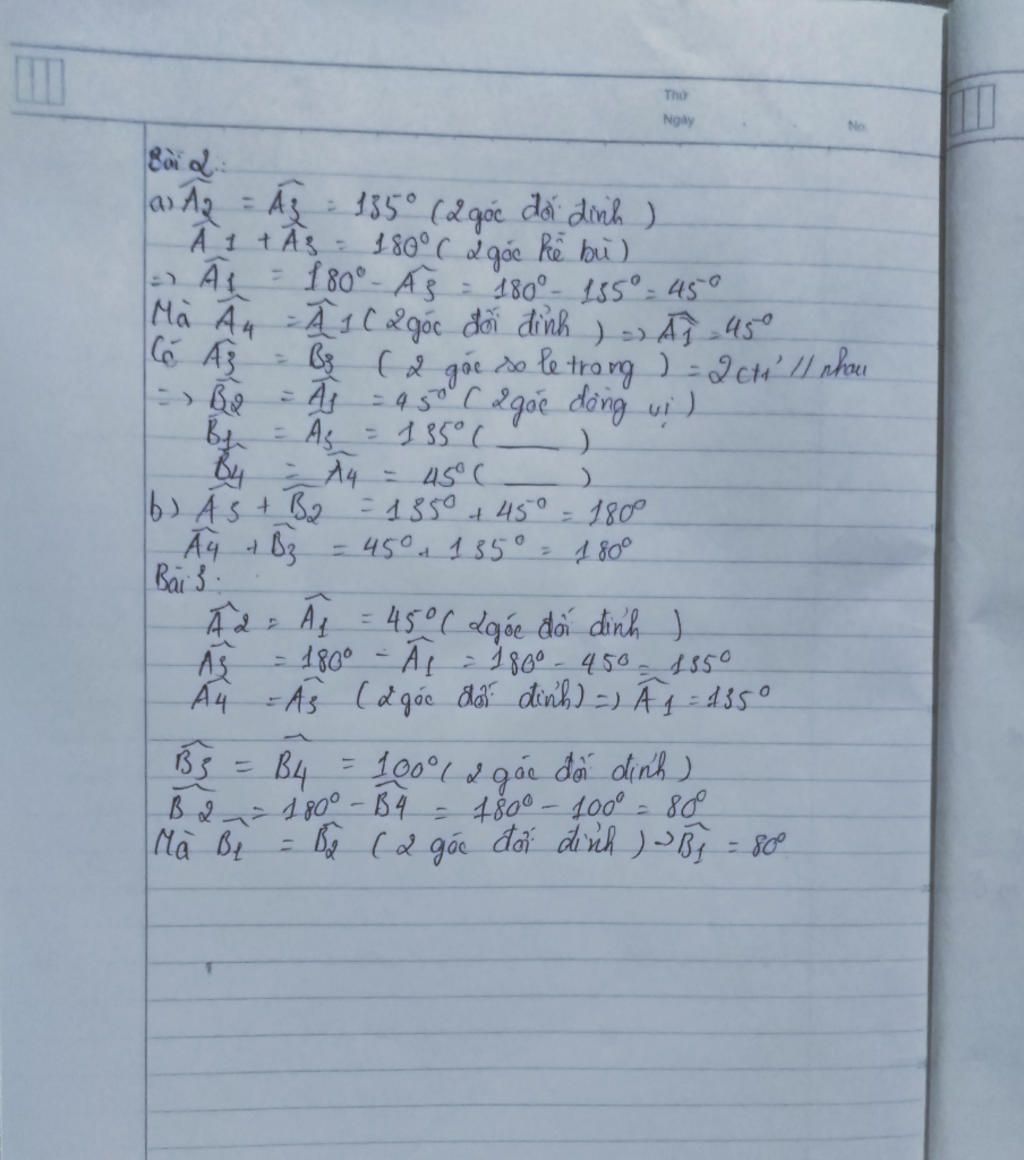 Thứ
Ngày
No.
Bài 2:
a) Â2 = Â3 = 135° (2 góc đối đỉnh)
Â1 + Â3 = 180° (2 góc kề bù)
=> Â1 = 180° - Â3 = 180° - 135° = 45°
Mà Â4 = Â1 (2 góc đối đỉnh) => Â1 = 45°
Có Â3 = B̂3 (2 góc so le trong) = 2 // nhau
=> B̂2 = Â1 = 45° (2 góc đồng vị)
B̂1 = Â3 = 135° (____)
B̂4 = Â4 = 45° (____)
b) Â3 + B̂2 = 135° + 45° = 180°
Â4 + B̂3 = 45° + 135° = 180°
Bài 3:
Â2 = Â1 = 45° (2 góc đối đỉnh)
Â3 = 180° - Â1 = 180° - 45° = 135°
Â4 = Â3 (2 góc đối đỉnh) => Â1 = 135°
B̂3 = B̂4 = 100° (2 góc đối đỉnh)
B̂2 = 180° - B̂4 = 180° - 100° = 80°
Mà B̂1 = B̂2 (2 góc đối đỉnh) -> B̂1 = 80°